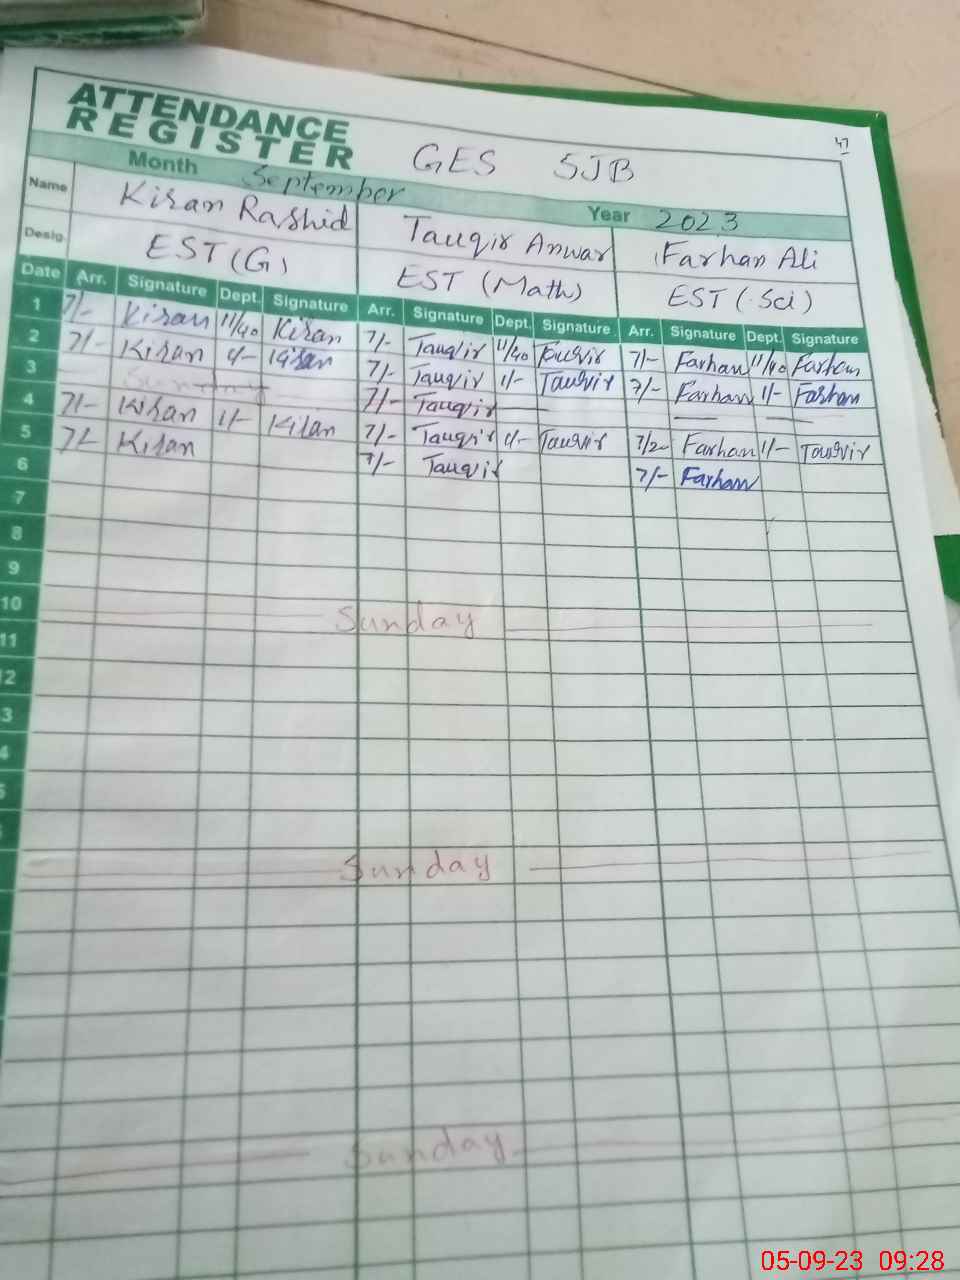 47
ATTENDANCE
REGISTER
GES SJB
Month September Year 2023
Name Kiran Rashid Tauqir Anwar Farhan Ali
Desig. EST (G) EST (Math) EST (Sci)
Date Arr. Signature Dept. Signature Arr. Signature Dept. Signature Arr. Signature Dept. Signature
1 7/- Kiran 11/40 Kiran 7/- Tauqir 11/40 Tauqir 7/- Farhan 11/40 Farhan
2 7/- Kiran 11/- Kiran 7/- Tauqir 11/- Tauqir 7/- Farhan 11/- Farhan
3 Sunday 7/- Tauqir
4 7/- Kiran 11/- Kiran 7/- Tauqir 11/- Tauqir 7/2- Farhan 11/- Tauqir
5 7/- Kiran 7/- Tauqir 7/- Farhan
6
7
8
9
10 Sunday
11
2
3
4
5
Sunday
Sunday
05-09-23 09:28